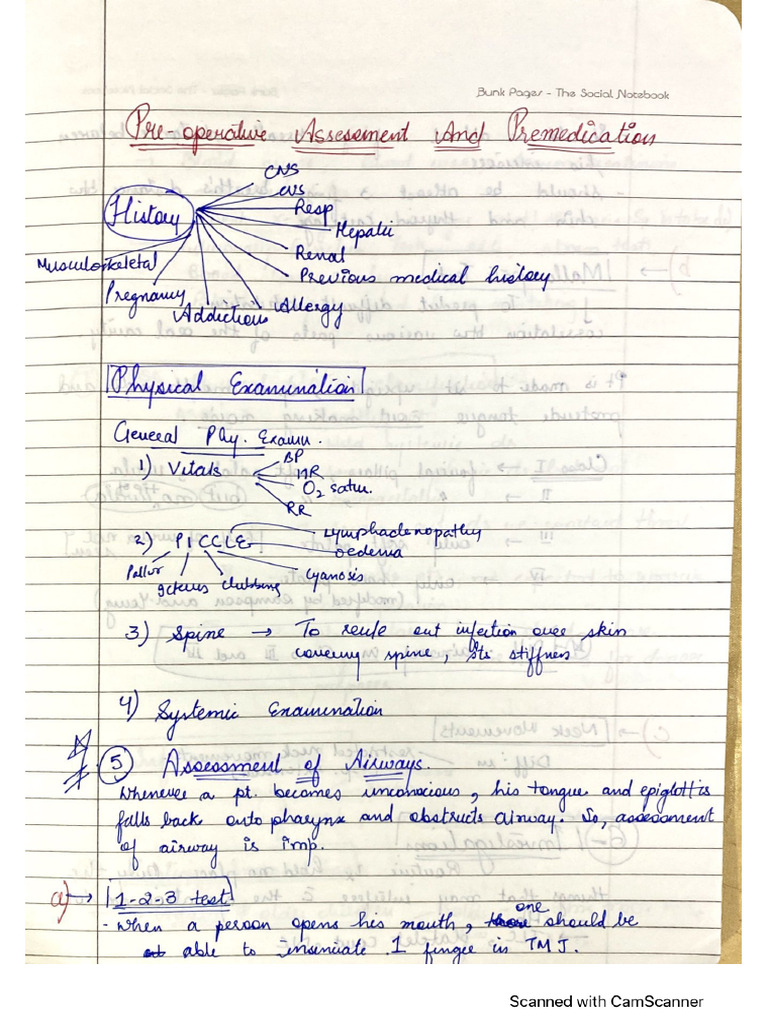 Bunk Pages - The Social Notebook
Pre-operative Assessment And Premedication
History
CNS
CVS
Resp
Hepatic
Renal
Previous medical history
Allergy
Addictions
Pregnancy
Musculoskeletal
Physical Examination
General Phy. Examn.
1) Vitals
BP
HR
O2 satur.
RR
2) PICCLE
Lymphadenopathy
oedema
cyanosis
clubbing
Icterus
Pallor
3) Spine → To reule out infection over skin
covering spine, its stiffness
4) Systemic Examination
5 Assessment of Airways.
Whenever a pt. becomes unconcious, his tongue and epiglottis
falls back onto pharynx and obstructs airway. So, assessment
of airway is imp.
a) → 1-2-3 test
- When a person opens his mouth, one should be
able to insinuate 1 finger in TMJ.
Scanned with CamScanner